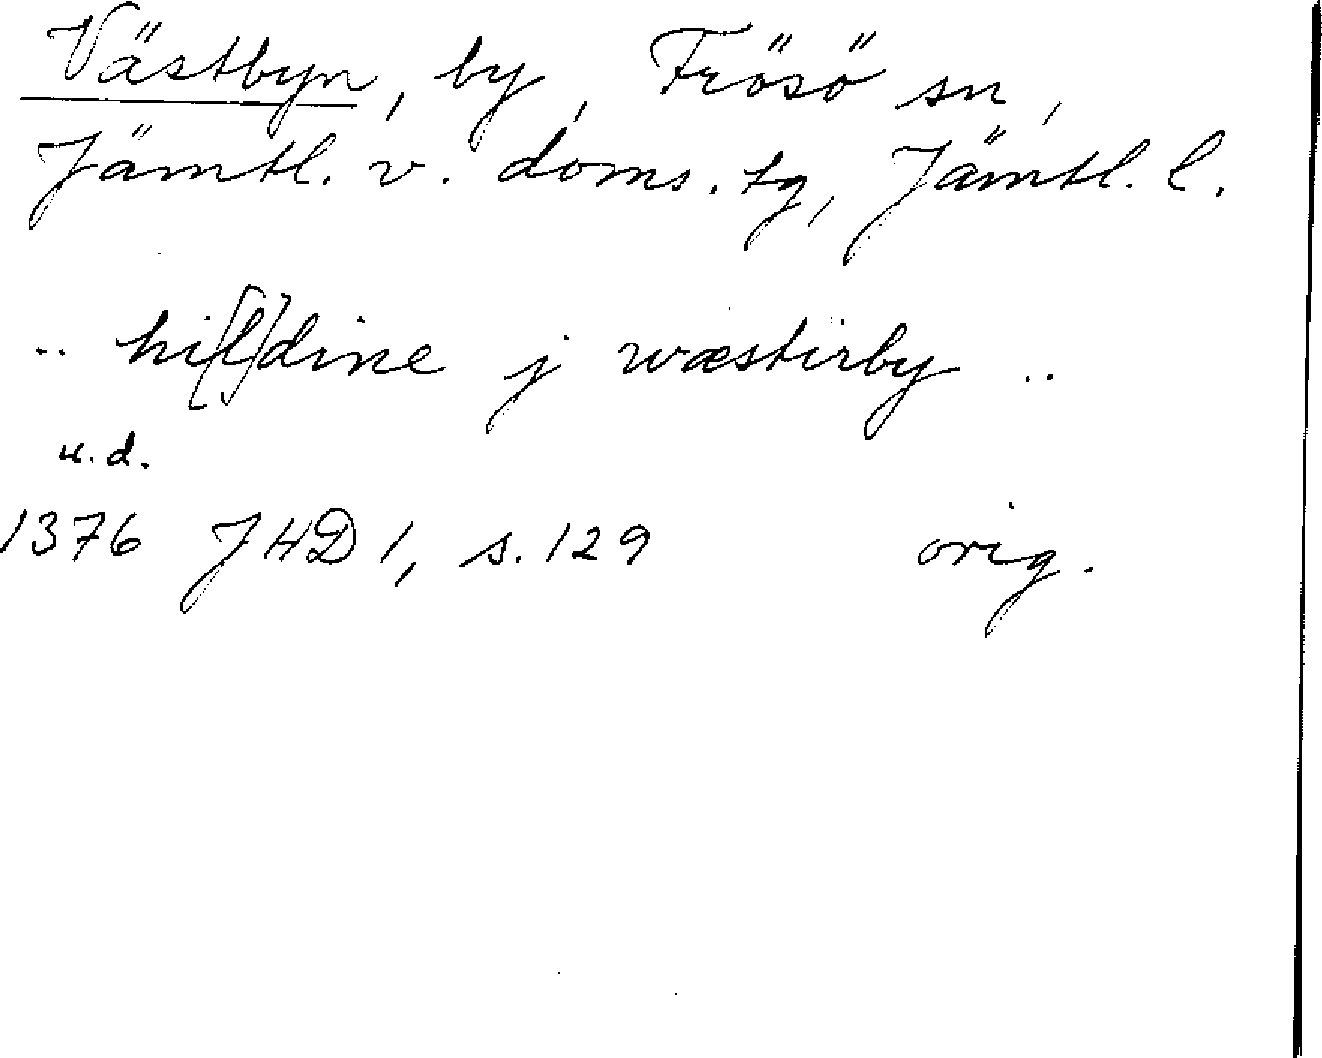 Västbyn, by, Frösö sn,
Jämtl. v. doms. tg, Jämtl. l.
.. hi[l]dine j wæstirby ..
u. d.
1376 JHD 1, s. 129 orig.